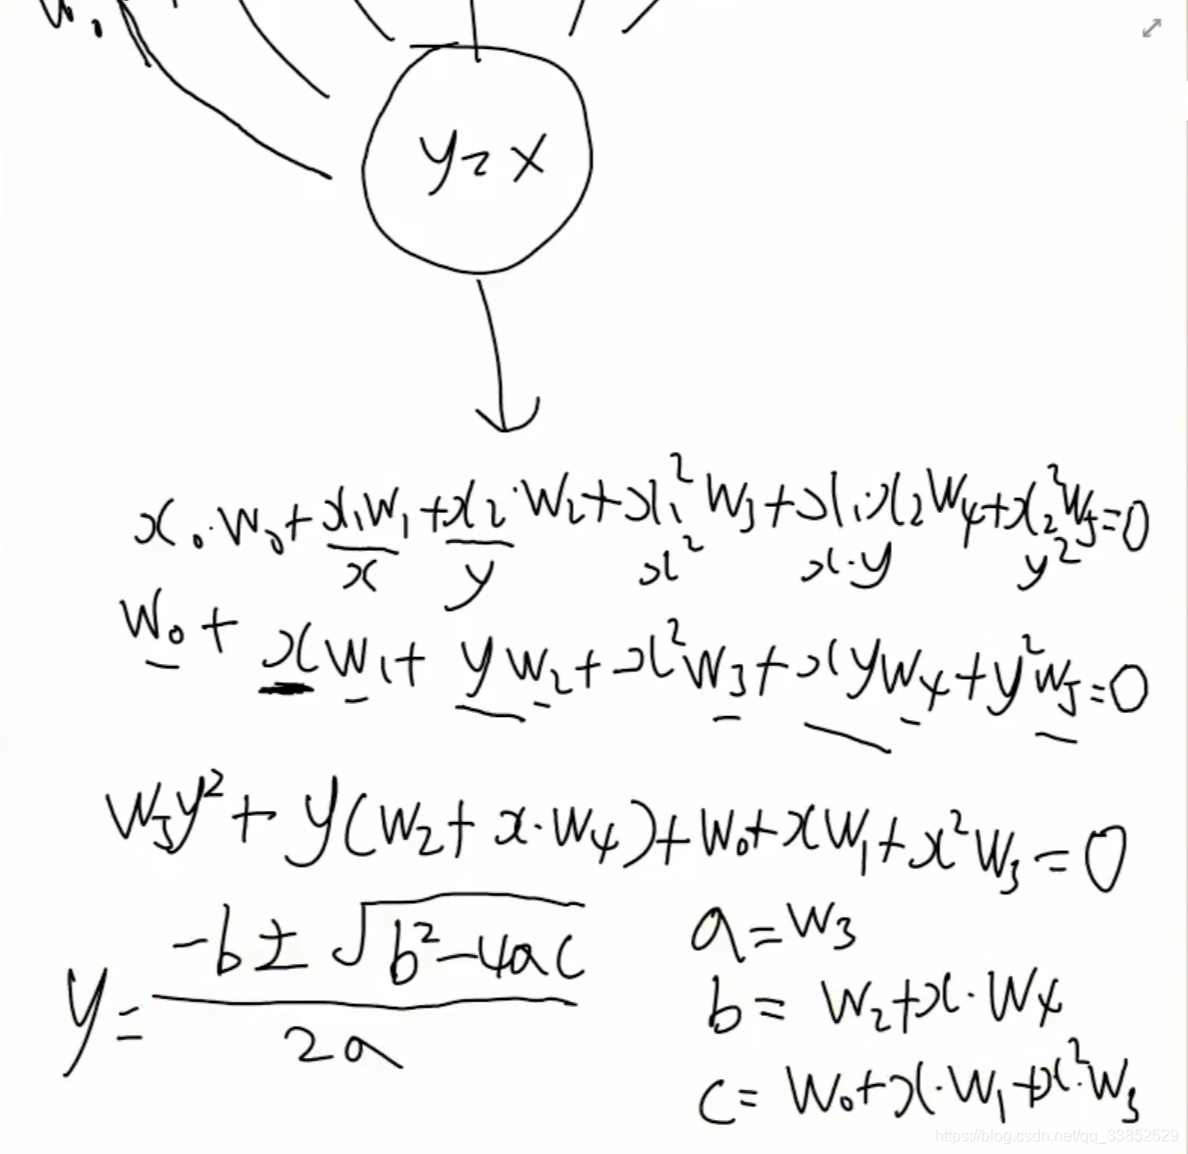 w.
y=x
x₀·w₀+x₁w₁+x₂·w₂+x₁²w₃+x₁·x₂w₄+x₂²w₅=0
x y x² x·y y²
w₀+xw₁+yw₂+x²w₃+xyw₄+y²w₅=0
w₅y²+y(w₂+x·w₄)+w₀+xw₁+x²w₃=0
y=(-b±√(b²-4ac))/(2a)
a=w₃
b=w₂+x·w₄
c=w₀+x·w₁+x²·w₃
https://blog.csdn.net/qq_33852529